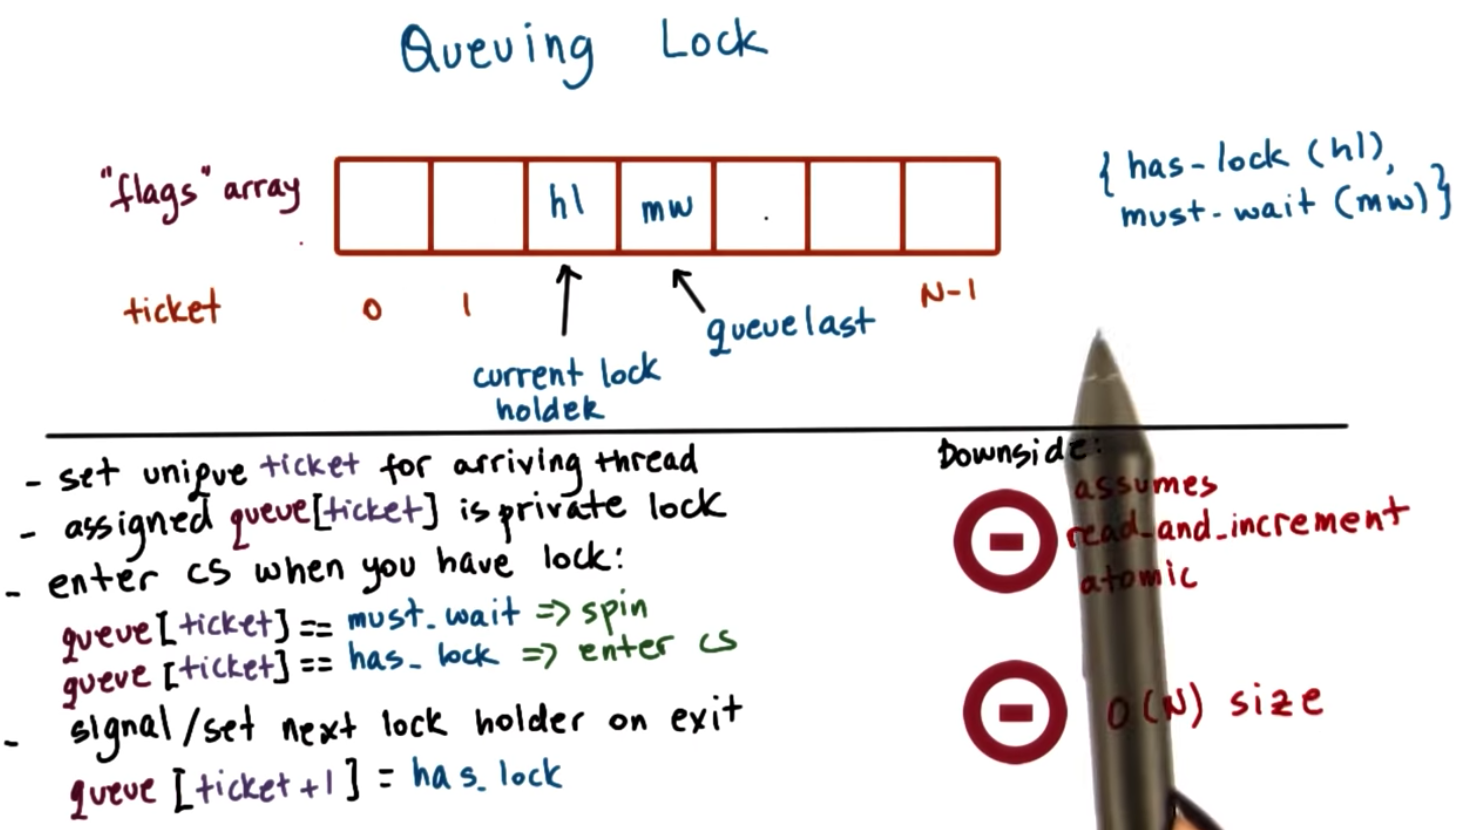 Queuing Lock
"flags" array
hl
mw
{has-lock (hl),
must-wait (mw)}
ticket
0
1
N-1
current lock
holder
queue last
- set unique ticket for arriving thread
- assigned queue[ticket] is private lock
- enter cs when you have lock:
queue[ticket] == must_wait => spin
queue[ticket] == has_lock => enter cs
- signal/set next lock holder on exit
queue [ticket+1] = has_lock
Downside:
assumes
read_and_increment
atomic
O(N) size